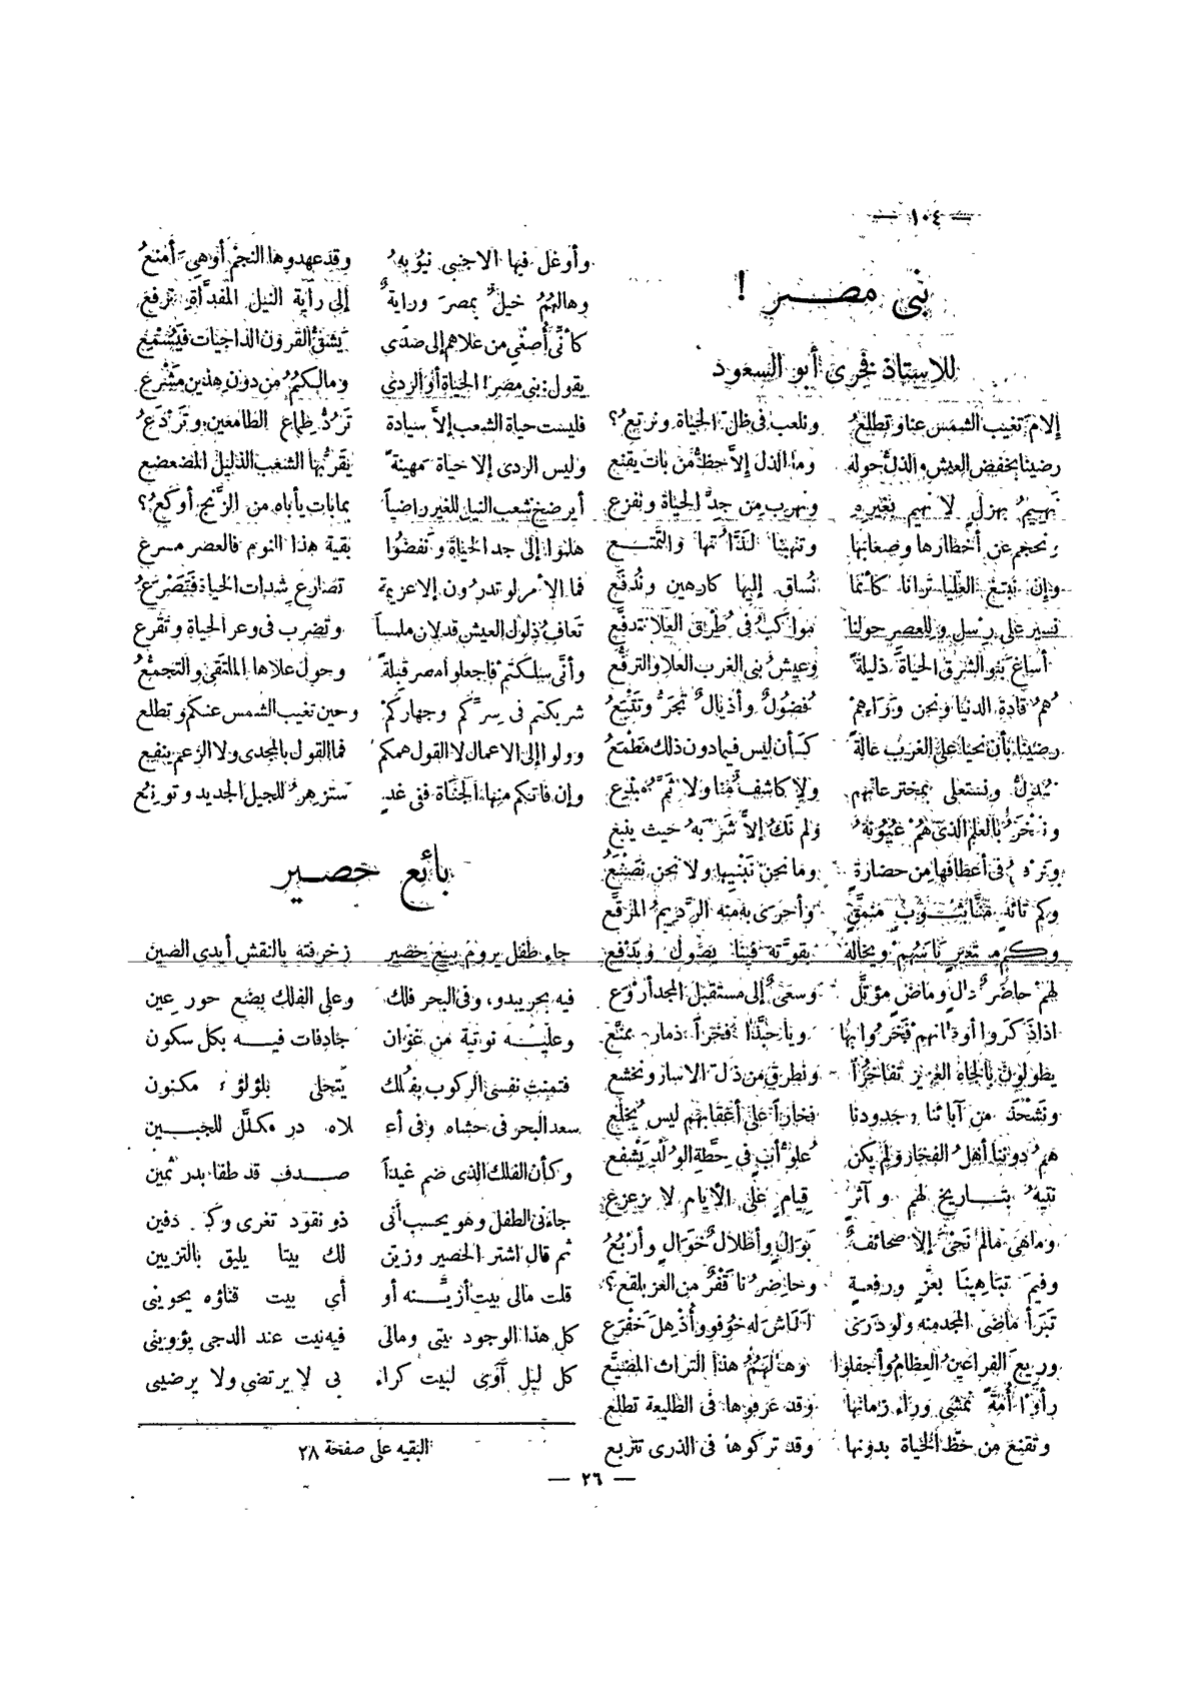 — ١٠٤ —
بنى مصر !
للاستاذ فخرى أبو السعود
إلامَ تغيب الشمس عنا وتطلعُ ونلعب فى ظل الحياة ونرتعُ؟
رضينا بخفض العيش والذلُّ حوله وما الذل إلاَّ حظُّ من بات يقنع
نهيمُ بهزلٍ لا نهيم بغيره ونهرب من جدِّ الحياة ونفزع
ونحجم عن أخطارها وصعابها وتنهينا لذَّاتها والتمتع
وإن نبتغ العليا تُرانا كأنما نُساق إليها كارهين ونُدفَع
نسير على رِسل وللعصر حولنا مواكبُ فى طُرق العلا تتدفَّع
أساغ بنو الشرق الحياة ذليلةً وعيشُ بنى الغرب العلا والترفُّع
هُم قادة الدنيا ونحن وراءهم فُضولٌ وأذيالٌ تُجَرُّ وتَتْبَعُ
رضينا بأن نحيا على الغرب عالةً كأن ليس فيما دون ذلك مَطْمَعُ
نُدِلُّ ونستعلى بمخترعاتهم ولا كاشفٌ منا ولا ثَمَّ مبدع
ونفخر بالعلم الذى هُمْ عُيُونهُ ولم نكُ إلاَّ شَرْبَهُ حيث ينبع
ونرفُل فى أعطافها من حضارةٍ وما نحن نَبْنيها ولا نحن نَصْنَعُ
وكم تائهٍ منَّا بثـوبٍ منمَّقٍ وأحرى به منه الرَّديمُ المرَقَّع
وكم مُدبرٍ نَاسَهُمْ ويخاله بقوَّته فينا يصُول ويَدْفع
لهمْ حاضرٌ عالٍ وماضٍ مؤثَّل وسعىٌ إلى مستقبل المجد أرْوَع
اذا ذكروا أوطانهم فَخَروا بها ويا حبَّذا فخراً ذمارٌ ممنَّع
يطولون بالجاه العزيز تفاخُراً ونطرق من ذل الاسار ونخشع
ونَشْحَذ من آبائنا وجدودنا فخاراً على أعقابهم ليس يُخلَع
همُ دوننا أهل الفخار ولم يكن علوُّ أبٍ فى حِطَّة الوُلْد يَشْفع
نتيهُ بتـاريخ لهم وآثرٍ قيامٍ على الأيام لا تزعزع
وما هى مالم نَحْىَ إلا صحائفٌ بَوالٍ وأطلالٌ خَوَالٍ وأربُعُ
وفيمَ تباهينا بعزٍ ورفعةٍ وحاضرُنا قَفْرٌ من العز بلقع؟
تَبَرَّأ ماضى المجد منه ولو درى لَلَاش له خوفو وأذهلَ خَفْرَع
وريع الفراعين العظام وأجفلوا وهالهمُ هذا التراث المضيَّع
رأوْا أُمةً تمشى وراء زمانها وقد عرفوها فى الطليعة تطلع
وتقنع من حظِّ الحياة بدونها وقد تركوها فى الذرى تتربع
وأوغل فيها الاجنبى نيوبهُ وقد عهدوها النجمُ أو هىَ أمنعُ
وهالهُمُ خيلٌ بمصرَ ورايةٌ إلى رأية النيل المفدَّاةِ ترفع
كأنى أُصغى من علاهم إلى صدًى يَشقُّ القرون الداجيات فيُسْمِعُ
يقول: بنى مصر! الحياة أو الردى ومالكمُ من دون هذين مَشْرع
فليست حياة الشعب إلاَّ سيادة تَرُدُّ طِماعَ الطامعين وتَرْدَعُ
وليس الردى إلا حياة مهينةً يَقَرُّ بها الشعب الذليل المضعضع
أيرضخ شعب النيل للغير راضياً بما بات يأباه من الزَّنج أوكعُ؟
هلموا إلى جد الحياة وتَنفُضُوا بقية هذا النوم فالعصر مسرع
فما الأمر لو تدرون إلا عزيمة تصارع شدات الحياة فتَصْرعُ
تعاف ذلول العيش قد لان ملمساً وتضرب فى وعر الحياة وتقرع
وأنَّى سلكتم فاجعلوا مصر قبلةً وحول علاها الملتقى والتجمُّعُ
شريكتم فى سرِّكم وجهاركمْ وحين تغيب الشمس عنكم وتطلع
وولوا إلى الاعمال لا القول همكم فما القول بالمجدى ولا الزعم ينفع
وإن فاتكم منها الجناة ففى غدٍ ستزهرُ للجيل الجديد وتونع
بائع حصير
جاء طفل يروم بيع حصير زخرفته بالنقش أيدى الصين
فيه بحر يبدو، وفى البحر فلك وعلى الفلك بضع حور عين
وعليـه نوتية من غوان جادفات فيـه بكل سكون
فتمنت نفسى الركوب بفلك يتحلى بلؤلؤ مكنون
سعد البحر فى حشاه وفى أعـ لاه در مكلَّل للجبـين
وكأن الفلك الذى ضم غيداً صـدف قد طفا بدر ثمين
جاءنى الطفل وهو يحسب أنى ذو نقود تغرى وكنز دفين
ثم قال اشتر الحصير وزين لك بيتا يليق بالتزيين
قلت مالى بيت أزيـنه أو أي بيت فناؤه يحوينى
كل هذا الوجود بيتى ومالى فيه بيت عند الدجى يؤوينى
كل ليل آوى لبيت كراء بى لا يرتضى ولا يرضينى
البقيه على صفحة ٢٨
— ٢٦ —